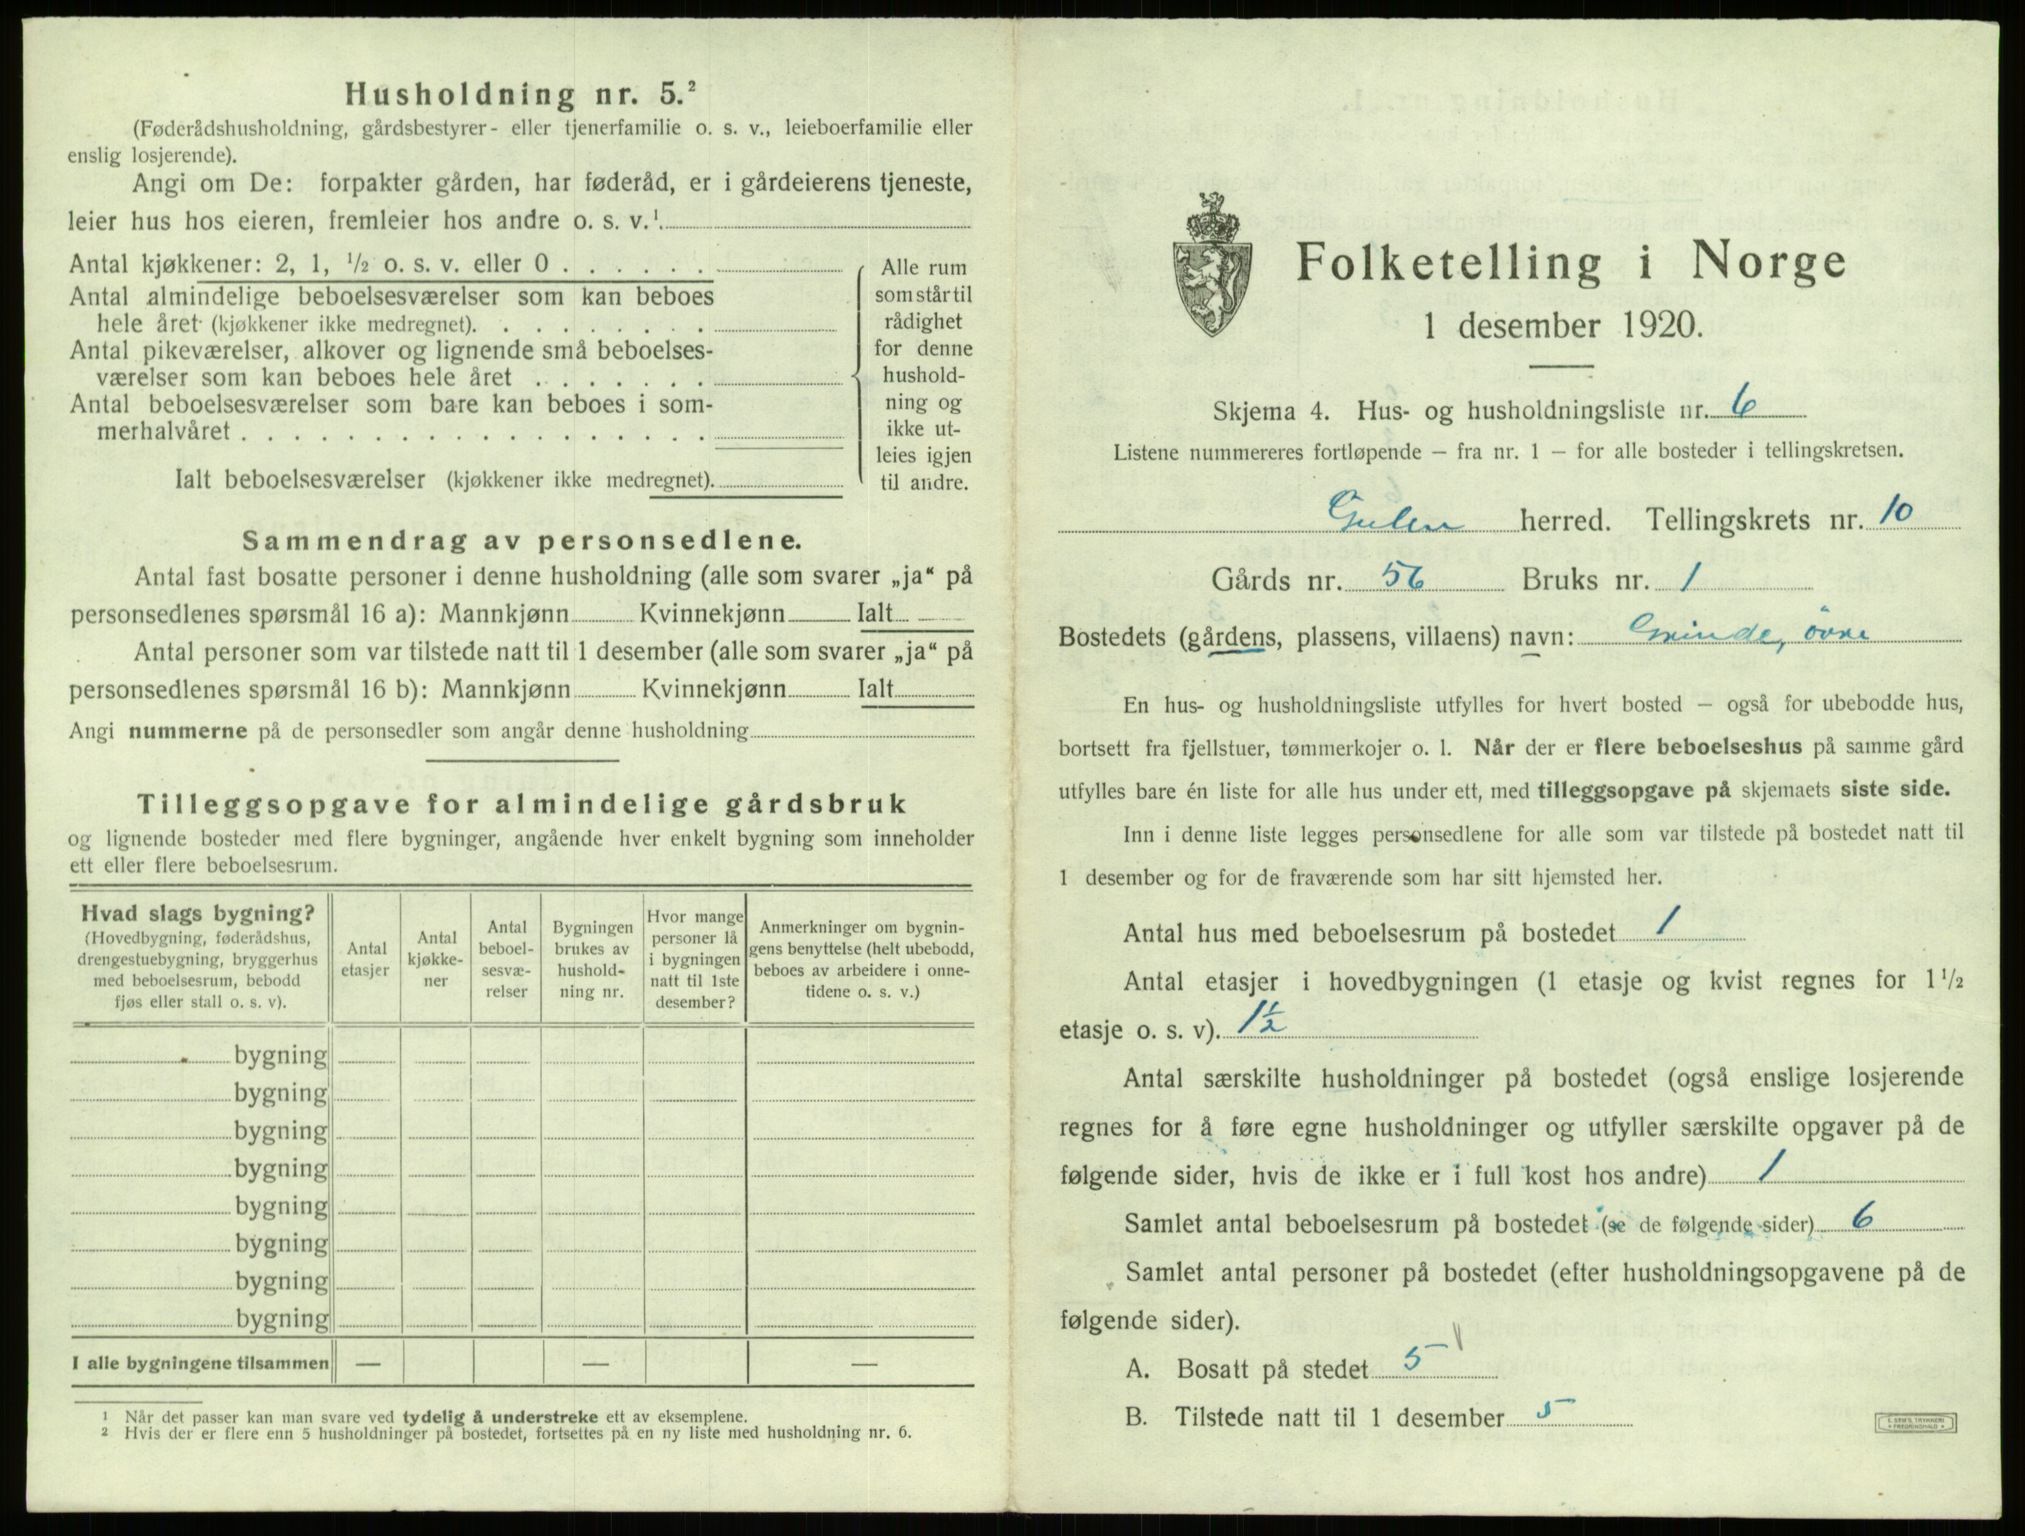 Husholdning nr. 5.²
(Føderådshusholdning, gårdsbestyrer- eller tjenerfamilie o. s. v., leieboerfamilie eller
enslig losjerende).
Angi om De: forpakter gården, har føderåd, er i gårdeierens tjeneste,
leier hus hos eieren, fremleier hos andre o. s. v.¹
Antal kjøkkener: 2, 1, ½ o. s. v. eller 0 . . . . . .
Antal almindelige beboelsesværelser som kan beboes
hele året (kjøkkener ikke medregnet). . . . . . . . .
Antal pikeværelser, alkover og lignende små beboelses-
værelser som kan beboes hele året . . . . . . .
Antal beboelsesværelser som bare kan beboes i som-
merhalvåret . . . . . . . . . . . . . . . . . .
Ialt beboelsesværelser (kjøkkener ikke medregnet).
Alle rum
som står til
rådighet
for denne
hushold-
ning og
ikke ut-
leies igjen
til andre.
Sammendrag av personsedlene.
Antal fast bosatte personer i denne husholdning (alle som svarer „ja“ på
personsedlenes spørsmål 16 a): Mannkjønn Kvinnekjønn Ialt
Antal personer som var tilstede natt til 1 desember (alle som svarer „ja“ på
personsedlenes spørsmål 16 b): Mannkjønn Kvinnekjønn Ialt
Angi nummerne på de personsedler som angår denne husholdning
Tilleggsopgave for almindelige gårdsbruk
og lignende bosteder med flere bygninger, angående hver enkelt bygning som inneholder
ett eller flere beboelsesrum.
Hvad slags bygning?
(Hovedbygning, føderådshus,
drengestuebygning, bryggerhus
med beboelsesrum, bebodd
fjøs eller stall o. s. v).
Antal
etasjer
Antal
kjøkke-
ner
Antal
beboel-
sesvæ-
relser
Bygningen
brukes av
hushold-
ning nr.
Hvor mange
personer lå
i bygningen
natt til 1ste
desember?
Anmerkninger om bygnin-
gens benyttelse (helt ubebodd,
beboes av arbeidere i onne-
tidene o. s. v.)
bygning
bygning
bygning
bygning
bygning
bygning
bygning
bygning
I alle bygningene tilsammen — — —
¹ Når det passer kan man svare ved tydelig å understreke ett av eksemplene.
² Hvis der er flere enn 5 husholdninger på bostedet, fortsettes på en ny liste med husholdning nr. 6.
Folketelling i Norge
1 desember 1920.
Skjema 4. Hus- og husholdningsliste nr. 6
Listene nummereres fortløpende — fra nr. 1 — for alle bosteder i tellingskretsen.
Gulen herred. Tellingskrets nr. 10
Gårds nr. 56 Bruks nr. 1
Bostedets (gårdens, plassens, villaens) navn: Grinde, övre
En hus- og husholdningsliste utfylles for hvert bosted — også for ubebodde hus,
bortsett fra fjellstuer, tømmerkojer o. l. Når der er flere beboelseshus på samme gård
utfylles bare én liste for alle hus under ett, med tilleggsopgave på skjemaets siste side.
Inn i denne liste legges personsedlene for alle som var tilstede på bostedet natt til
1 desember og for de fraværende som har sitt hjemsted her.
Antal hus med beboelsesrum på bostedet 1
Antal etasjer i hovedbygningen (1 etasje og kvist regnes for 1 ½
etasje o. s. v). 1½
Antal særskilte husholdninger på bostedet (også enslige losjerende
regnes for å føre egne husholdninger og utfyller særskilte opgaver på de
følgende sider, hvis de ikke er i full kost hos andre) 1
Samlet antal beboelsesrum på bostedet (se de følgende sider) 6
Samlet antal personer på bostedet (efter husholdningsopgavene på de
følgende sider).
A. Bosatt på stedet 5
B. Tilstede natt til 1 desember 5